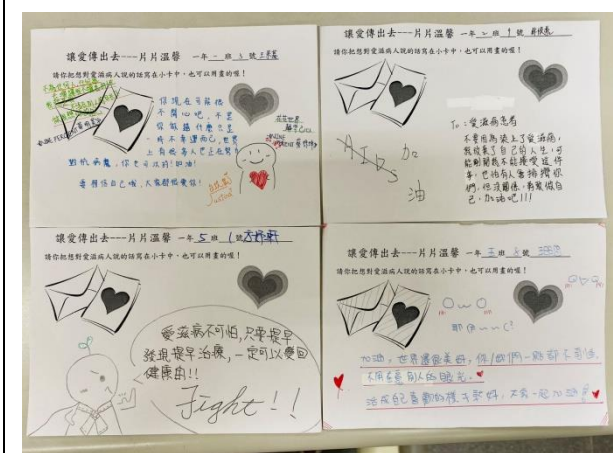 讓愛傳出去---片片溫馨 一年 一 班 3 號
請你把想對愛滋病人說的話寫在小卡中,也可以用畫的喔!
你現在可能很
不開心吧,不是
你做錯什麼只是
上有很多人也正在努力
對抗病魔,你也可以的!加油!
要相信自己哦,大家都很愛你!
讓愛傳出去---片片溫馨 一年 2 班 9 號
請你把想對愛滋病人說的話寫在小卡中,也可以用畫的喔!
To:愛滋病患者
不要因為染上了愛滋病,
就放棄了自己的人生,可
能剛開始不能接受這件
事,也怕有人會排擠你
們,但沒關係,勇敢做自
己,加油吧!!!
AIDS
加
油
讓愛傳出去---片片溫馨 一年 5 班 1 號
請你把想對愛滋病人說的話寫在小卡中,也可以用畫的喔!
愛滋病不可怕,只要提早
發現提早治療,一定可以變回
健康的!!
Fight!!
讓愛傳出去---片片溫馨 一年 三 班 3 號
請你把想對愛滋病人說的話寫在小卡中,也可以用畫的喔!
OwO
加油,世界還很美好,你/妳們一點都不奇怪,
不用在意別人的眼光。
活成自己喜歡的樣子就好,大家一起加油